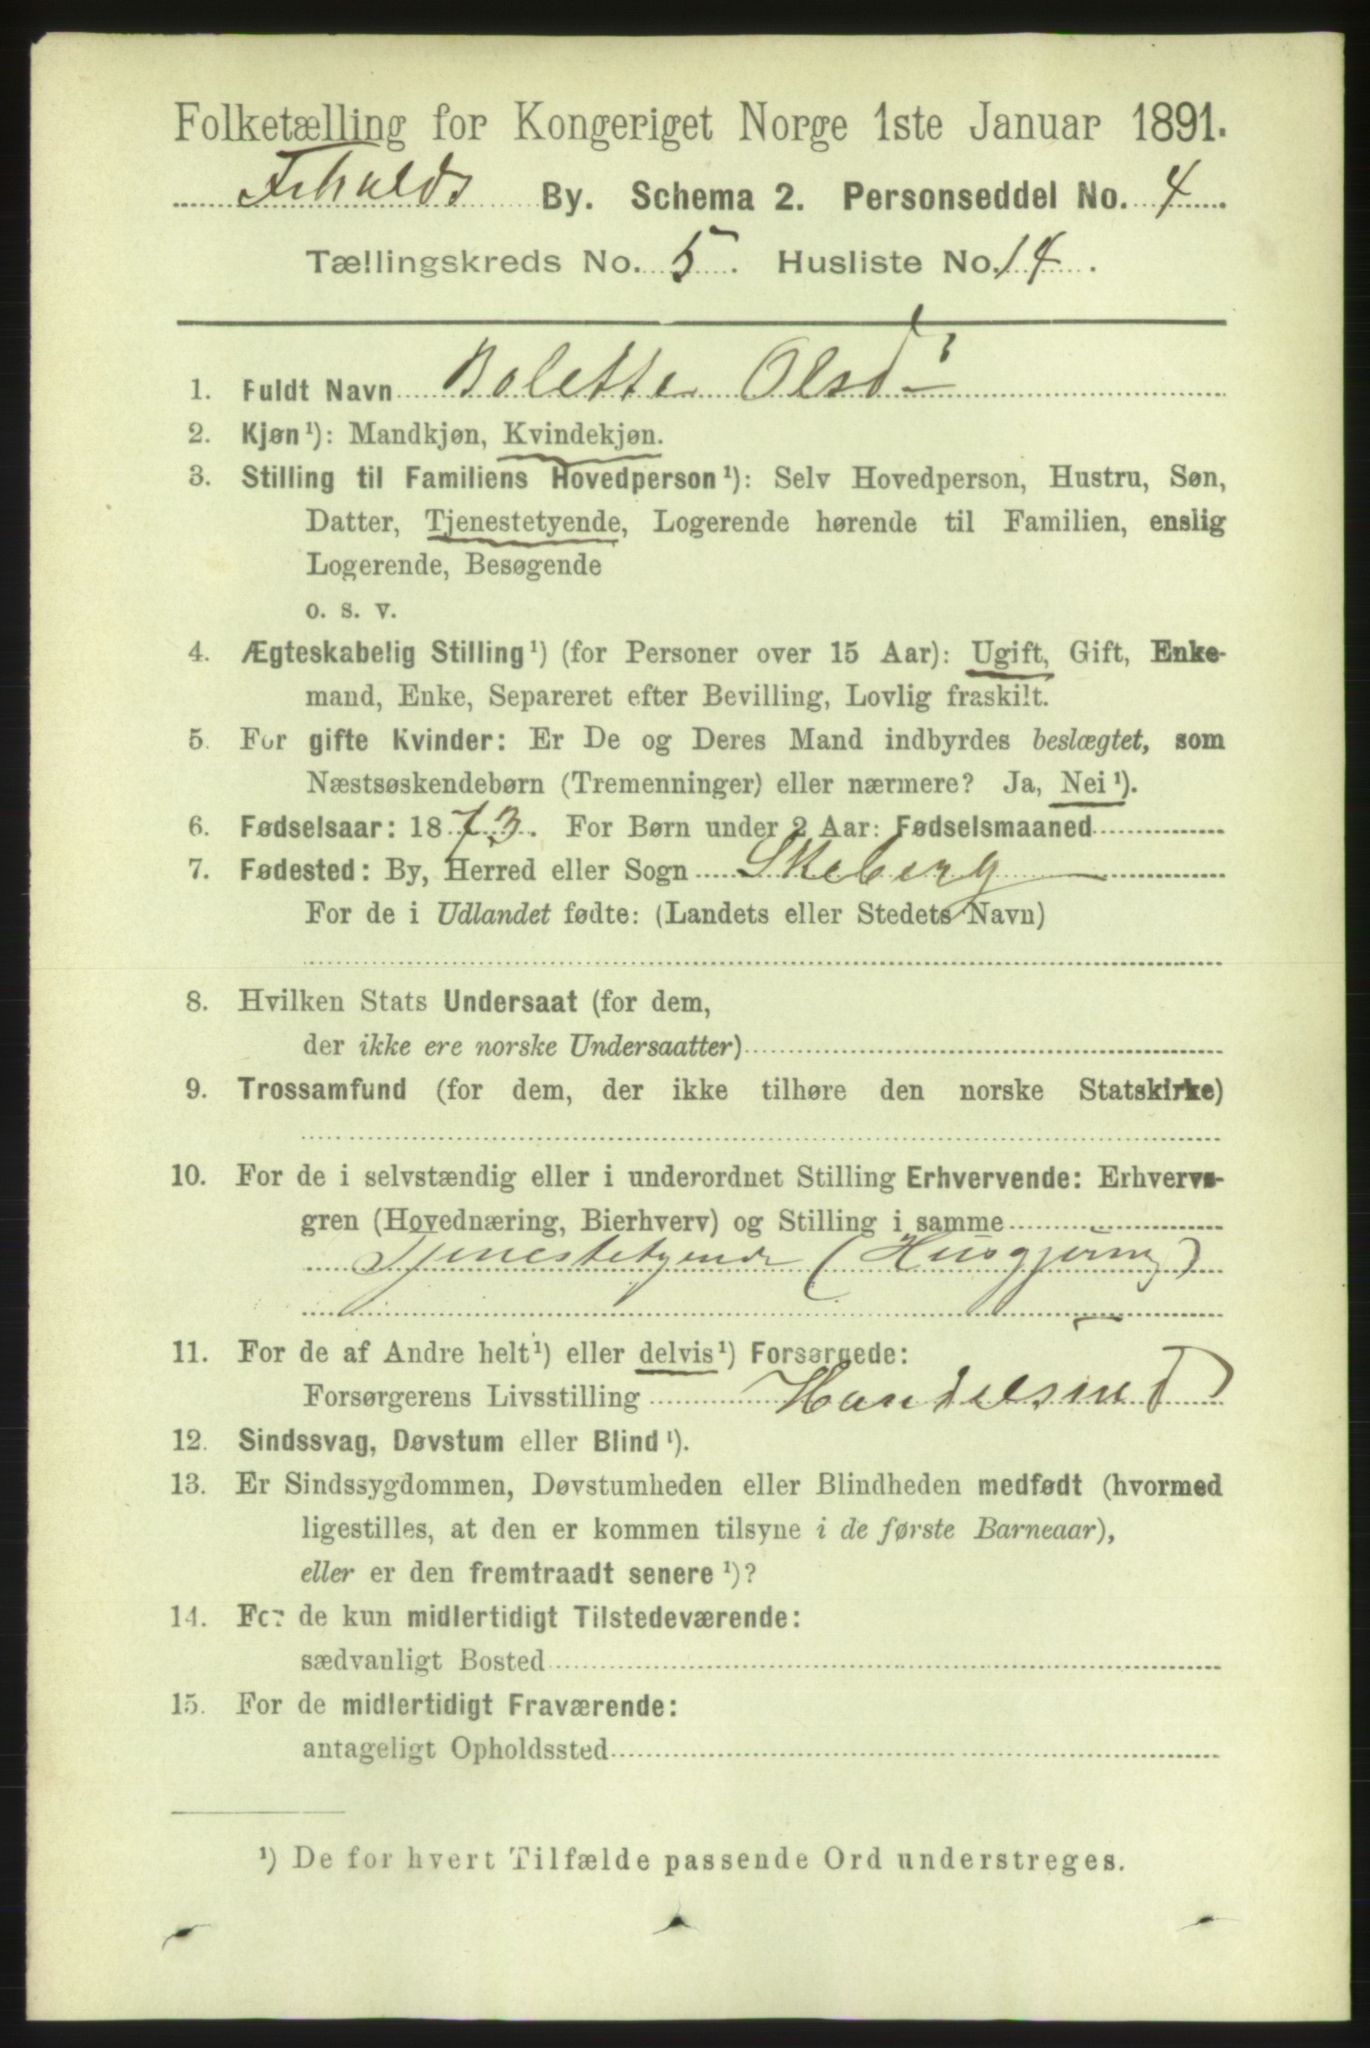 Folketælling for Kongeriget Norge 1ste Januar 1891.
Frhalds By. Schema 2. Personseddel No. 4
Tællingskreds No. 5. Husliste No. 14.
1. Fuldt Navn Bolette Olsd
2. Kjøn ¹): Mandkjøn, Kvindekjøn.
3. Stilling til Familiens Hovedperson ¹): Selv Hovedperson, Hustru, Søn,
Datter, Tjenestetyende, Logerende hørende til Familien, enslig
Logerende, Besøgende
o. s. v.
4. Ægteskabelig Stilling ¹) (for Personer over 15 Aar): Ugift, Gift, Enke-
mand, Enke, Separeret efter Bevilling, Lovlig fraskilt.
5. For gifte Kvinder: Er De og Deres Mand indbyrdes beslægtet, som
Næstsøskendebørn (Tremenninger) eller nærmere? Ja, Nei ¹).
6. Fødselsaar: 1873. For Børn under 2 Aar: Fødselsmaaned
7. Fødested: By, Herred eller Sogn Skeberg
For de i Udlandet fødte: (Landets eller Stedets Navn)
8. Hvilken Stats Undersaat (for dem,
der ikke ere norske Undersaatter)
9. Trossamfund (for dem, der ikke tilhøre den norske Statskirke)
10. For de i selvstændig eller i underordnet Stilling Erhvervende: Erhvervs-
gren (Hovednæring, Bierhverv) og Stilling i samme
Tjenestetyende (Husgjøring)
11. For de af Andre helt ¹) eller delvis ¹) Forsørgede:
Forsørgerens Livsstilling Handelsmd
12. Sindssvag, Døvstum eller Blind ¹).
13. Er Sindssygdommen, Døvstumheden eller Blindheden medfødt (hvormed
ligestilles, at den er kommen tilsyne i de første Barneaar),
eller er den fremtraadt senere ¹)?
14. For de kun midlertidigt Tilstedeværende:
sædvanligt Bosted
15. For de midlertidigt Fraværende:
antageligt Opholdssted
¹) De for hvert Tilfælde passende Ord understreges.